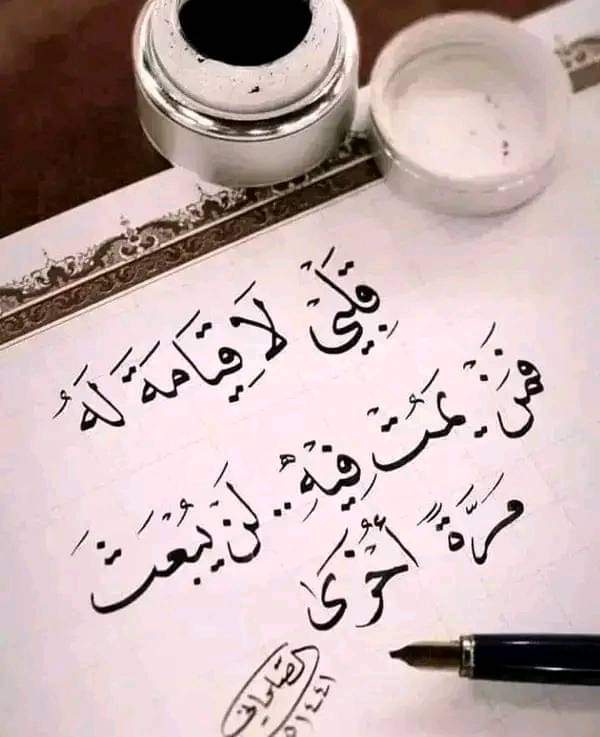 قَلْبِيْ لَا قِيَامَةَ لَهُ
فَمَنْ يَمُتْ فِيْهِ.. لَنْ يُبْعَثَ
مَرَّةً أُخْرَى
١٤٤١هـ